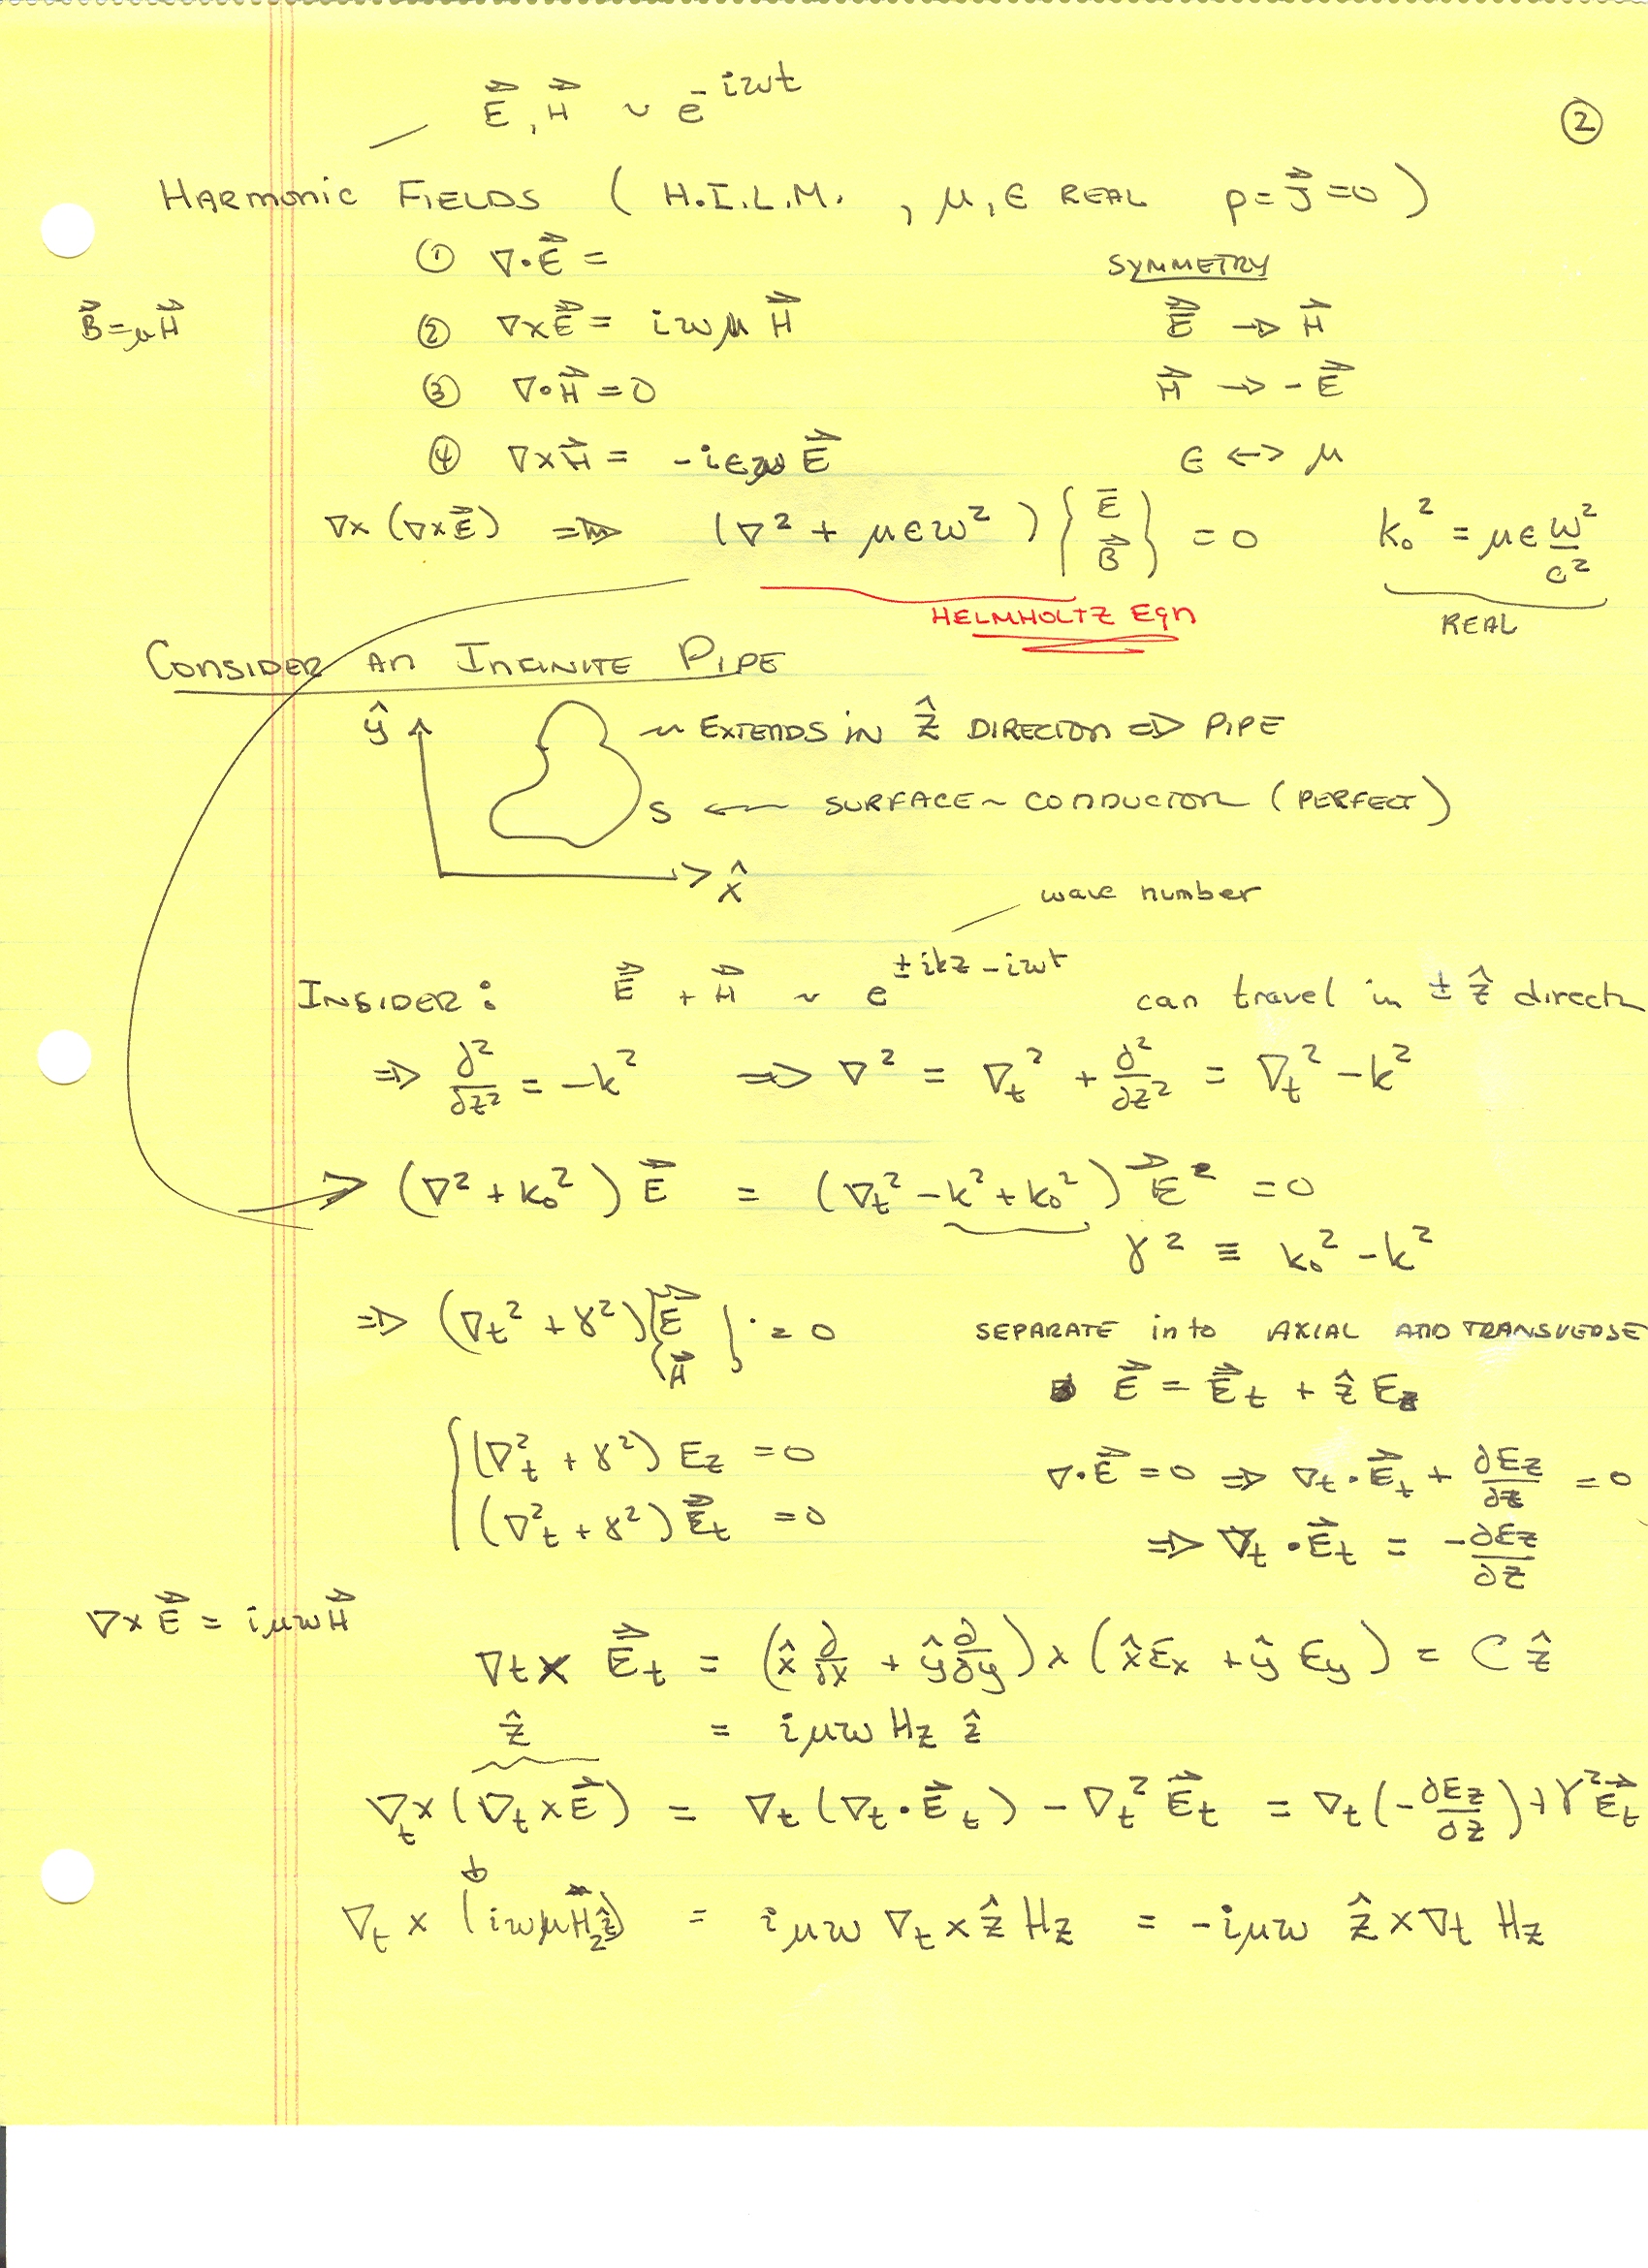 E⃗, H⃗ ~ e^{-iωt}
②
HARMONIC FIELDS ( H.I.L.M. , μ, ε REAL ρ = J⃗ = 0 )
① ∇·E⃗ =
SYMMETRY
B⃗ = μH⃗
② ∇×E⃗ = iωμ H⃗
E⃗ → H⃗
③ ∇·H⃗ = 0
H⃗ → -E⃗
④ ∇×H⃗ = -iεω E⃗
ε ↔ μ
∇×(∇×E⃗) ⇒ (∇² + μεω²) { E⃗ B⃗ } = 0 k₀² = με ω²/c²
HELMHOLTZ Eqn
REAL
CONSIDER AN INFINITE PIPE
ŷ
~ EXTENDS IN ẑ DIRECTON ⇒ PIPE
S ← SURFACE ~ CONDUCTOR (PERFECT)
x̂
wave number
INSIDER: E⃗ + H⃗ ~ e^{±ikz-iωt} can travel in ± ẑ directn
⇒ ∂²/∂z² = -k² ⇒ ∇² = ∇t² + ∂²/∂z² = ∇t² - k²
(∇² + k₀²) E⃗ = (∇t² - k² + k₀²) E⃗ = 0
γ² ≡ k₀² - k²
⇒ (∇t² + γ²) { E⃗ H⃗ } = 0
SEPARATE into AXIAL AND TRANSVERSE
E⃗ = E⃗t + ẑ Ez
(∇t² + γ²) Ez = 0
∇·E⃗ = 0 ⇒ ∇t·E⃗t + ∂Ez/∂z = 0
(∇t² + γ²) E⃗t = 0
⇒ ∇t·E⃗t = -∂Ez/∂z
∇×E⃗ = iμωH⃗
∇t × E⃗t = (x̂ ∂/∂x + ŷ ∂/∂y) × (x̂Ex + ŷEy) = C ẑ
ẑ = iμω Hz ẑ
∇t×(∇t×E⃗) = ∇t(∇t·E⃗t) - ∇t² E⃗t = ∇t(-∂Ez/∂z) + γ²E⃗t
∇t × (iωμHzẑ) = iμω ∇t × ẑ Hz = -iμω ẑ × ∇t Hz